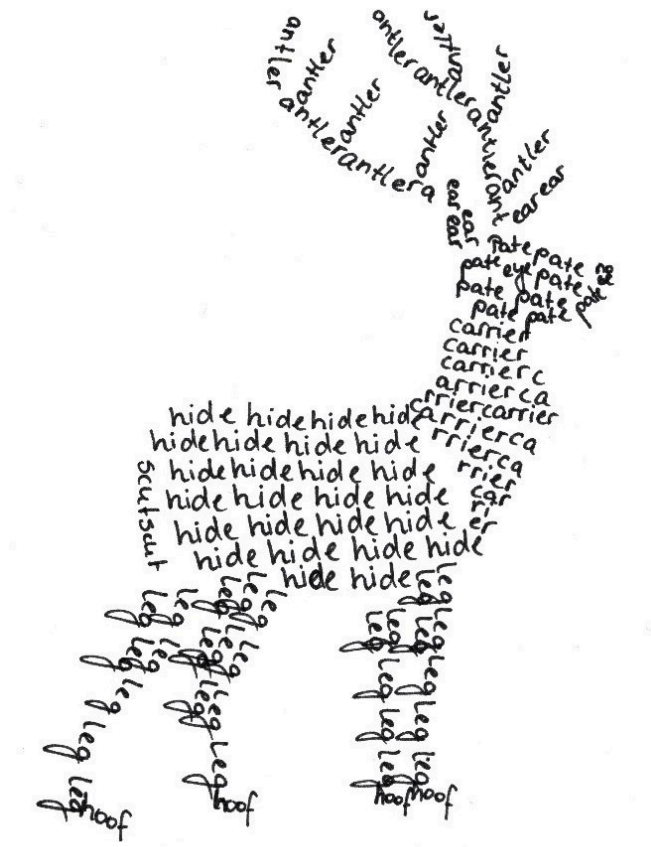 antler
antler
antlerantlera
antler
antler
antlerantlerantlerant
antler
antler
antler
earear
earear
ear
patepate
pate eye pate
pate pate pate
pate pate
carrier
carrier
carrierc
arrierca
rriercarrier
arrierca
rrierca
rrier
car
ri
er
hide hide hide hide
hide hide hide hide
hide hide hide hide
hide hide hide hide
hide hide hide hide
hide hide hide hide
hide hide
scutscut
leg leg leg leg leg
leg leg leg leg leg
leg leg leg leg leg
leg leg leg leg leg
hoof
hoof
hoof
hoof